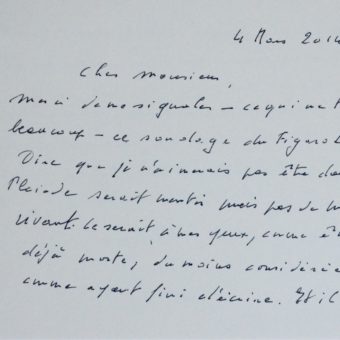 4 Mars 2014
Cher monsieur,
Merci de me signaler – ce qui me
beaucoup – ce sondage du Figaro
Dire que je n'aimerais pas être da
Pleiade serait mentir mais pas de m
vivant. Ce serait, à mes yeux, comme ê
déjà morte, du moins considérée
comme ayant fini d'écrire. Et il